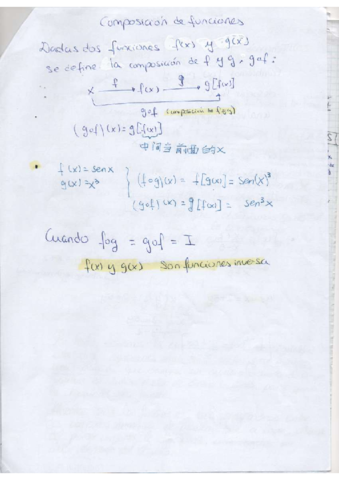 Composición de funciones
Dadas dos funciones f(x) y g(x)
se define la composición de f y g, gof:
x f f(x) g g[f(x)]
gof (composición de f con g)
(gof)(x) = g[f(x)]
f(x) = senx
g(x) = x³
(fog)(x) = f[g(x)] = sen(x)³
(gof)(x) = g[f(x)] = sen³x
Cuando fog = gof = I
f(x) y g(x) son funciones inversa